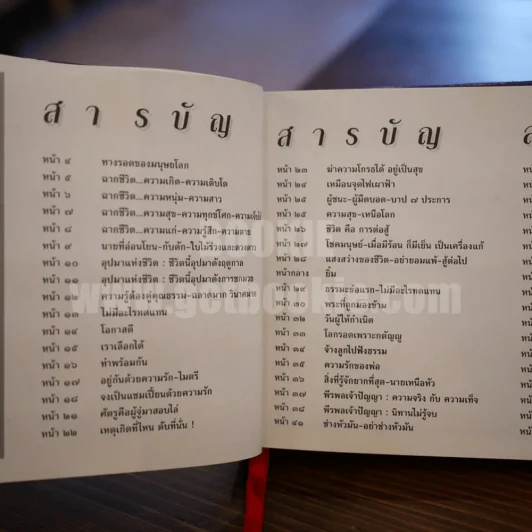 สารบัญ
หน้า ๔ ทางรอดของมนุษยโลก
หน้า ๕ ฉากชีวิต...ความเกิด-ความเติบโต
หน้า ๖ ฉากชีวิต...ความหนุ่ม-ความสาว
หน้า ๗ ฉากชีวิต...ความสุข-ความทุกข์โศก-ความ
หน้า ๘ ฉากชีวิต...ความแก่-ความรู้สึก-ความตาย
หน้า ๙ นายที่อ่อนโยน-กับดัก-ใบไม้ร่วงและดวงตา
หน้า ๑๐ อุปมาแห่งชีวิต : ชีวิตนี้อุปมาดังฤดูกาล
หน้า ๑๑ อุปมาแห่งชีวิต : ชีวิตนี้อุปมาดังการชกมวย
หน้า ๑๒ ความรู้ต้องคู่คุณธรรม-ฉลาดมาก วินาศมาก
หน้า ๑๓ ไม่มีอะไรทดแทน
หน้า ๑๔ โอกาสดี
หน้า ๑๕ เราเลือกได้
หน้า ๑๖ ทำพร้อมกัน
หน้า ๑๗ อยู่กันด้วยความรัก-ไมตรี
หน้า ๑๘ จงเป็นแชมเปี้ยนด้วยความรัก
หน้า ๒๑ ศัตรูคือผู้จู่มาสอบไล่
หน้า ๒๒ เหตุเกิดที่ไหน ดับที่นั่น !
สารบัญ
หน้า ๒๓ ฆ่าความโกรธได้ อยู่เป็นสุข
หน้า ๒๔ เหมือนจุดไฟเผาฟ้า
หน้า ๒๕ ผู้ชนะ-ผู้มืดบอด-บาป ๗ ประการ
หน้า ๒๕ ความสุข-เหนือโลก
หน้า ๒๖ ชีวิต คือ การต่อสู้
หน้า ๒๗ โชคมนุษย์-เมื่อมีร้อน ก็มีเย็น เป็นเครื่องแก้
หน้า ๒๘ แสงสว่างของชีวิต-อย่ายอมแพ้-สู้ต่อไป
หน้ากลาง ยิ้ม
หน้า ๒๙ ธรรมะข้อแรก-ไม่มีอะไรทดแทน
หน้า ๓๐ พระที่ถูกมองข้าม
หน้า ๓๒ วันผู้ให้กำเนิด
หน้า ๓๓ โลกรอดเพราะกตัญญู
หน้า ๓๔ จ้างลูกไปฟังธรรม
หน้า ๓๕ ความรักของพ่อ
หน้า ๓๖ สิ่งที่รู้จักยากที่สุด-นายเหนือหัว
หน้า ๓๗ พีรพลเจ้าปัญญา : ความจริง กับ ความเท็จ
หน้า ๓๘ พีรพลเจ้าปัญญา : นิทานไม่รู้จบ
หน้า ๔๑ ช่างหัวมัน-อย่าช่างหัวมัน